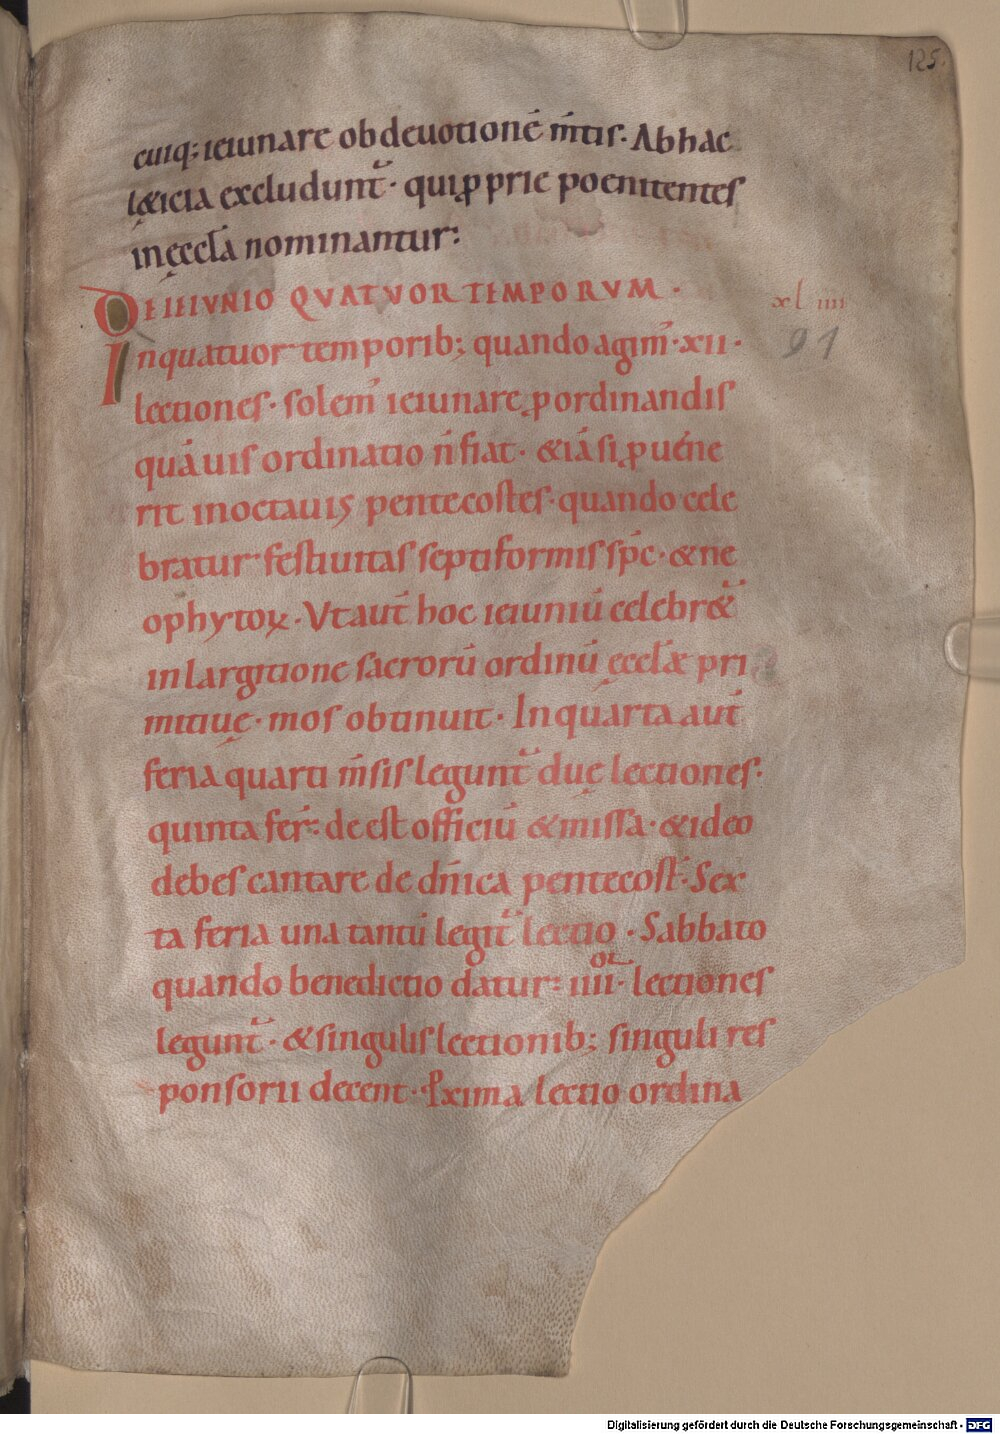 125.
cuiq; ieiunare ob deuotionē m̄tis. Ab hac
l&icia excludunt̃. qui ꝓprie poenitentes
in ęccl̄a nominantur:
DE IEIVNIO QVATVOR TEMPORVM. xl iiii
In quatuor temporib; quando agim᾽. xii. 91
lectiones. solem᾽ ieiunare ꝓ ordinandis
quāuis ordinatio n̄ fiat. &iā si ꝑuēne
rit in octauis pentecostes. quando cele
bratur festiuitas septiformis sp̄c. & ne
ophytoꝝ. Vt aut̄ hoc ieiuniū celebr&̃
in largitione sacrorū ordinū ęccl̄æ pri
mitiuę. mos obtinuit. In quarta aut̄
feria quarti m̄sis legunt̃ duę lectiones.
quinta fer̄: deest officiū & missa. & ideo
debes cantare de dn̄ica pentecost̄. Sex
ta feria una tantū legit̃ lectio. Sabbato
quando benedictio datur: iiii᾽. lectiones
legunt̃. & singulis lectionib; singuli res
ponsorii decent. Pxima lectio ordina
Digitalisierung gefördert durch die Deutsche Forschungsgemeinschaft - DFG